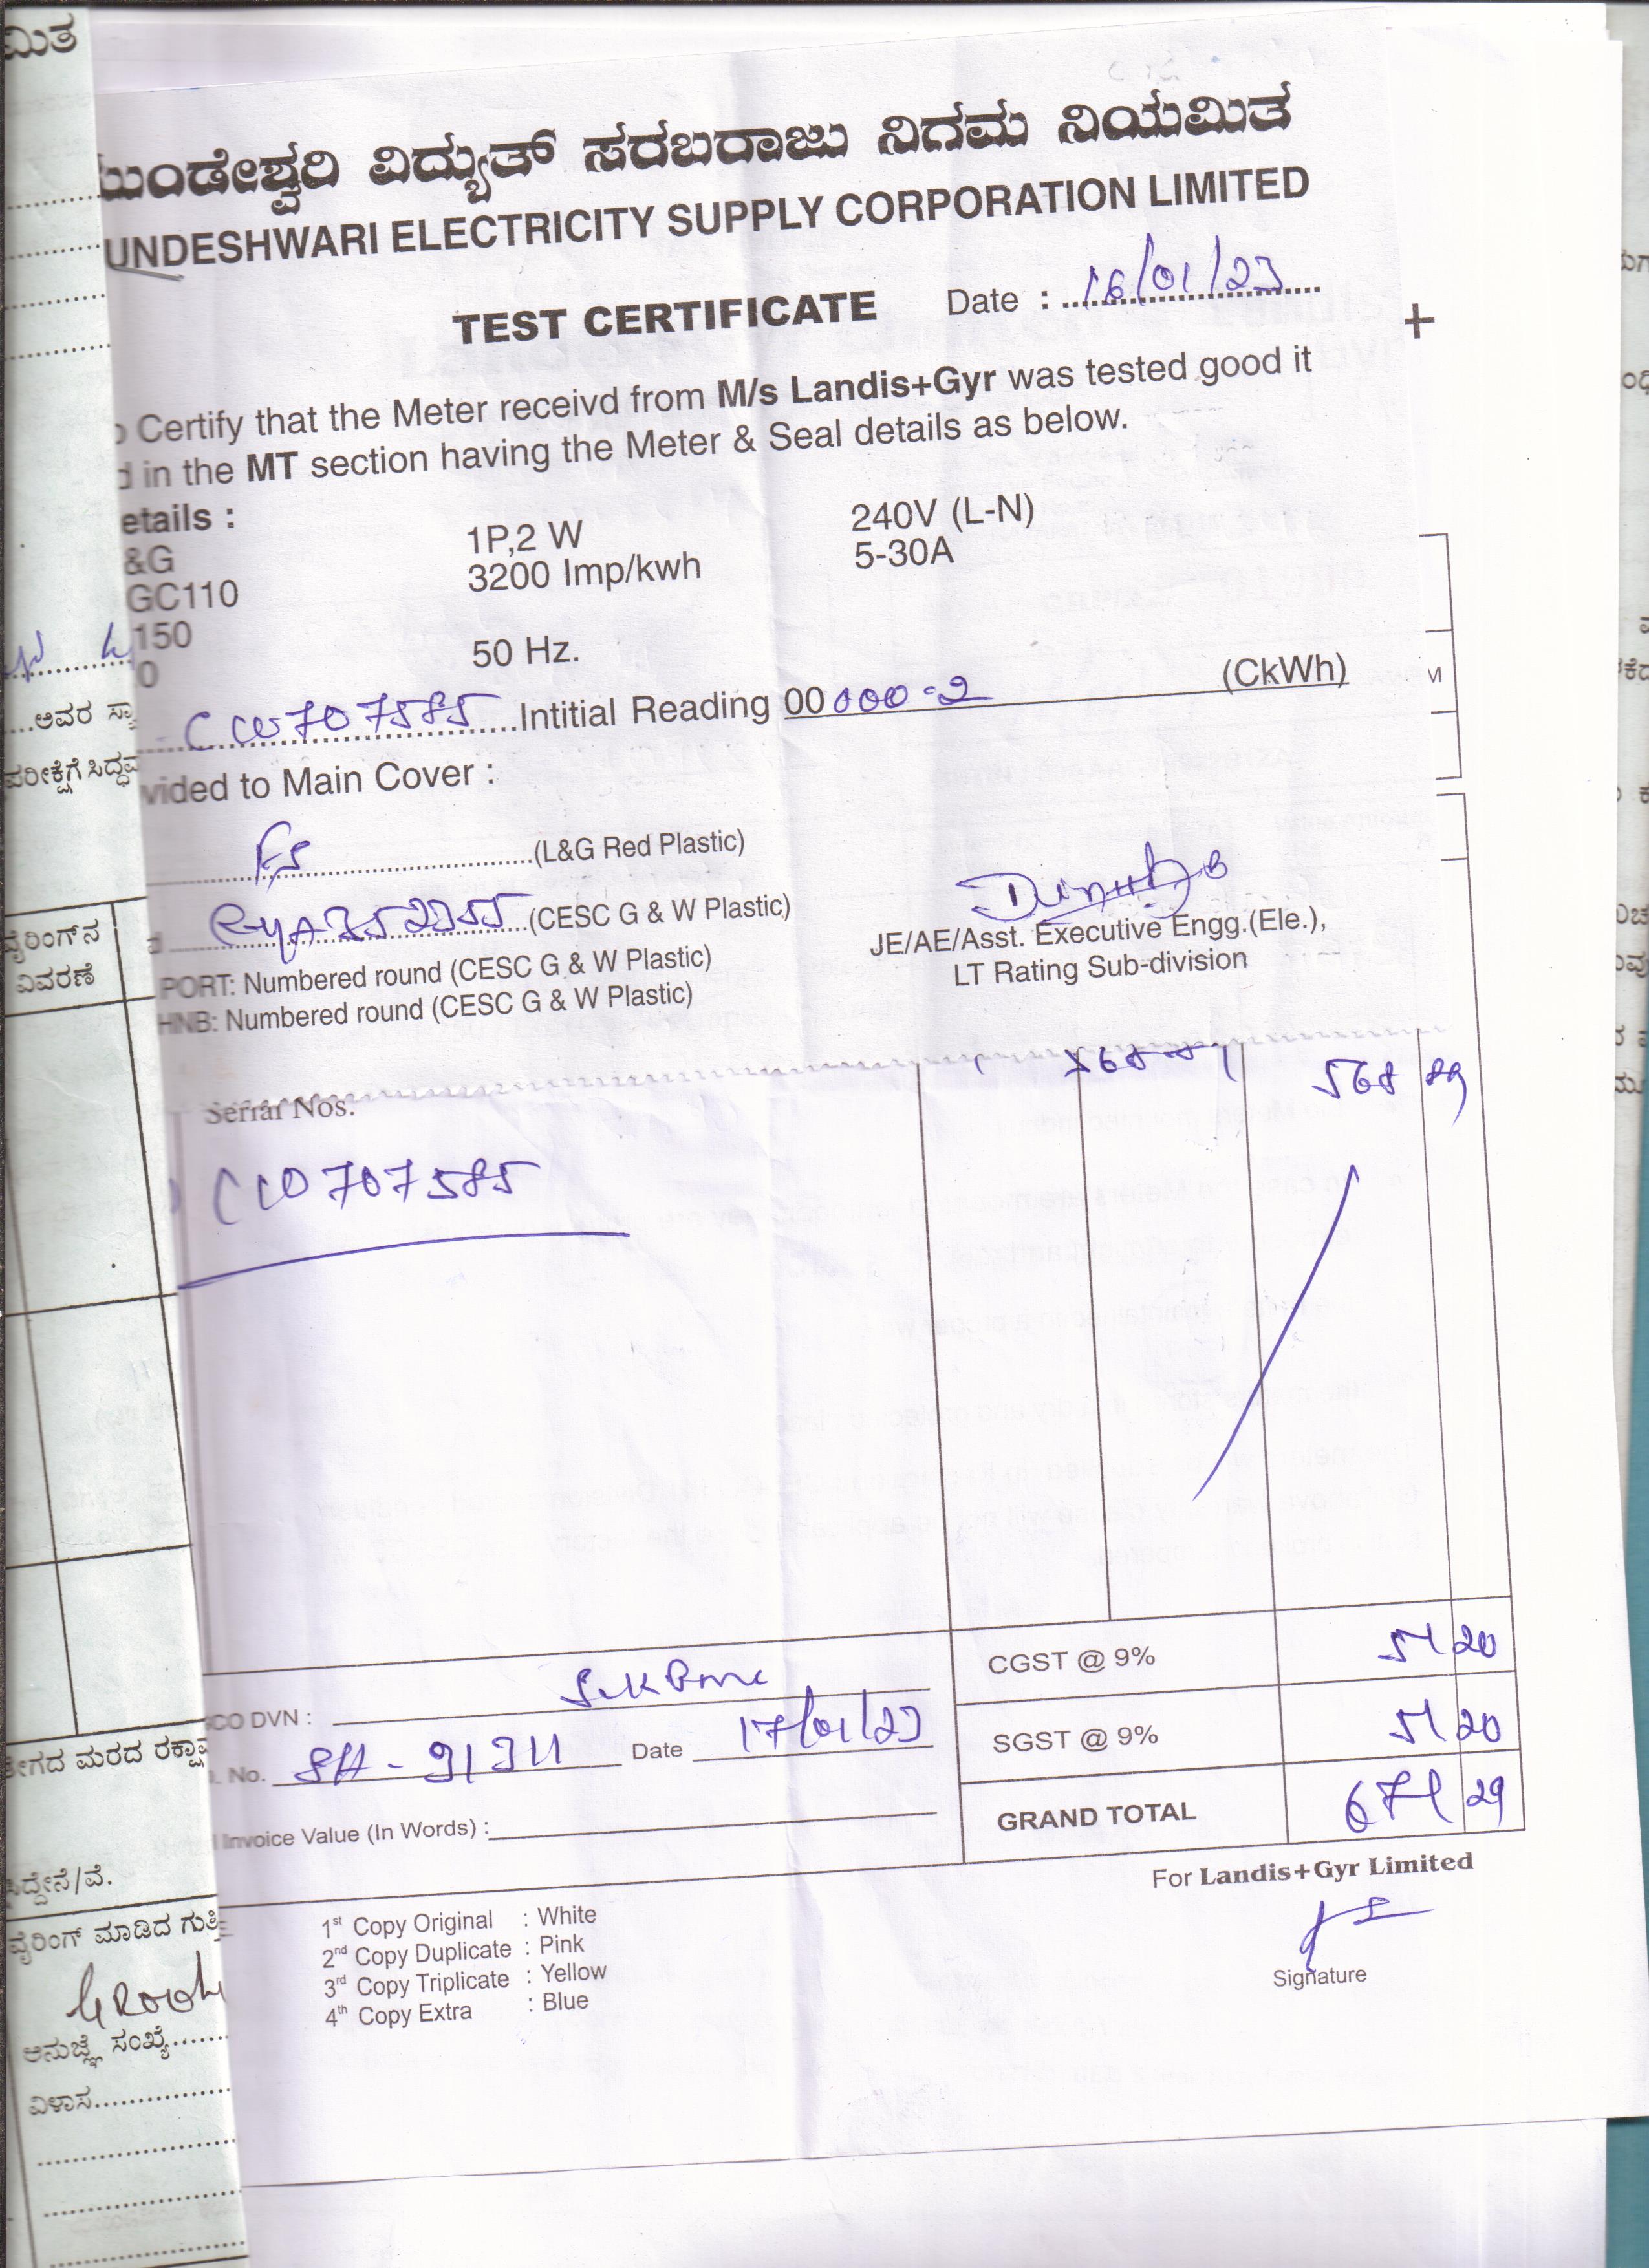 ಮಿತ
ಮುಂಡೇಶ್ವರಿ ವಿದ್ಯುತ್ ಸರಬರಾಜು ನಿಗಮ ನಿಯಮಿತ
UNDESHWARI ELECTRICITY SUPPLY CORPORATION LIMITED
TEST CERTIFICATE Date : 16/01/23
+
o Certify that the Meter receivd from M/s Landis+Gyr was tested good it
d in the MT section having the Meter & Seal details as below.
etails :
&G 1P,2 W 240V (L-N)
GC110 3200 Imp/kwh 5-30A
150
0 50 Hz.
CW707585 Intitial Reading 00000-2 (CkWh)
vided to Main Cover :
(L&G Red Plastic)
(CESC G & W Plastic)
PORT: Numbered round (CESC G & W Plastic)
HNB: Numbered round (CESC G & W Plastic)
JE/AE/Asst. Executive Engg.(Ele.),
LT Rating Sub-division
568 89
Serial Nos.
CW707585
CGST @ 9% 51 20
SGST @ 9% 51 20
GRAND TOTAL 671 29
CO DVN :
. No. Date 17/01/23
Invoice Value (In Words) :
For Landis+Gyr Limited
Signature
1st Copy Original : White
2nd Copy Duplicate : Pink
3rd Copy Triplicate : Yellow
4th Copy Extra : Blue
ಅವರ
ಪರೀಕ್ಷೆಗೆ ಸಿದ್ಧವ
ವೈರಿಂಗ್‌ನ
ವಿವರಣೆ
ಮರದ
ಸಿದ್ದೇನೆ/ವೆ.
ವೈರಿಂಗ್ ಮಾಡಿದ
ಅನುಜ್ಞೆ ಸಂಖ್ಯೆ
ವಿಳಾಸ